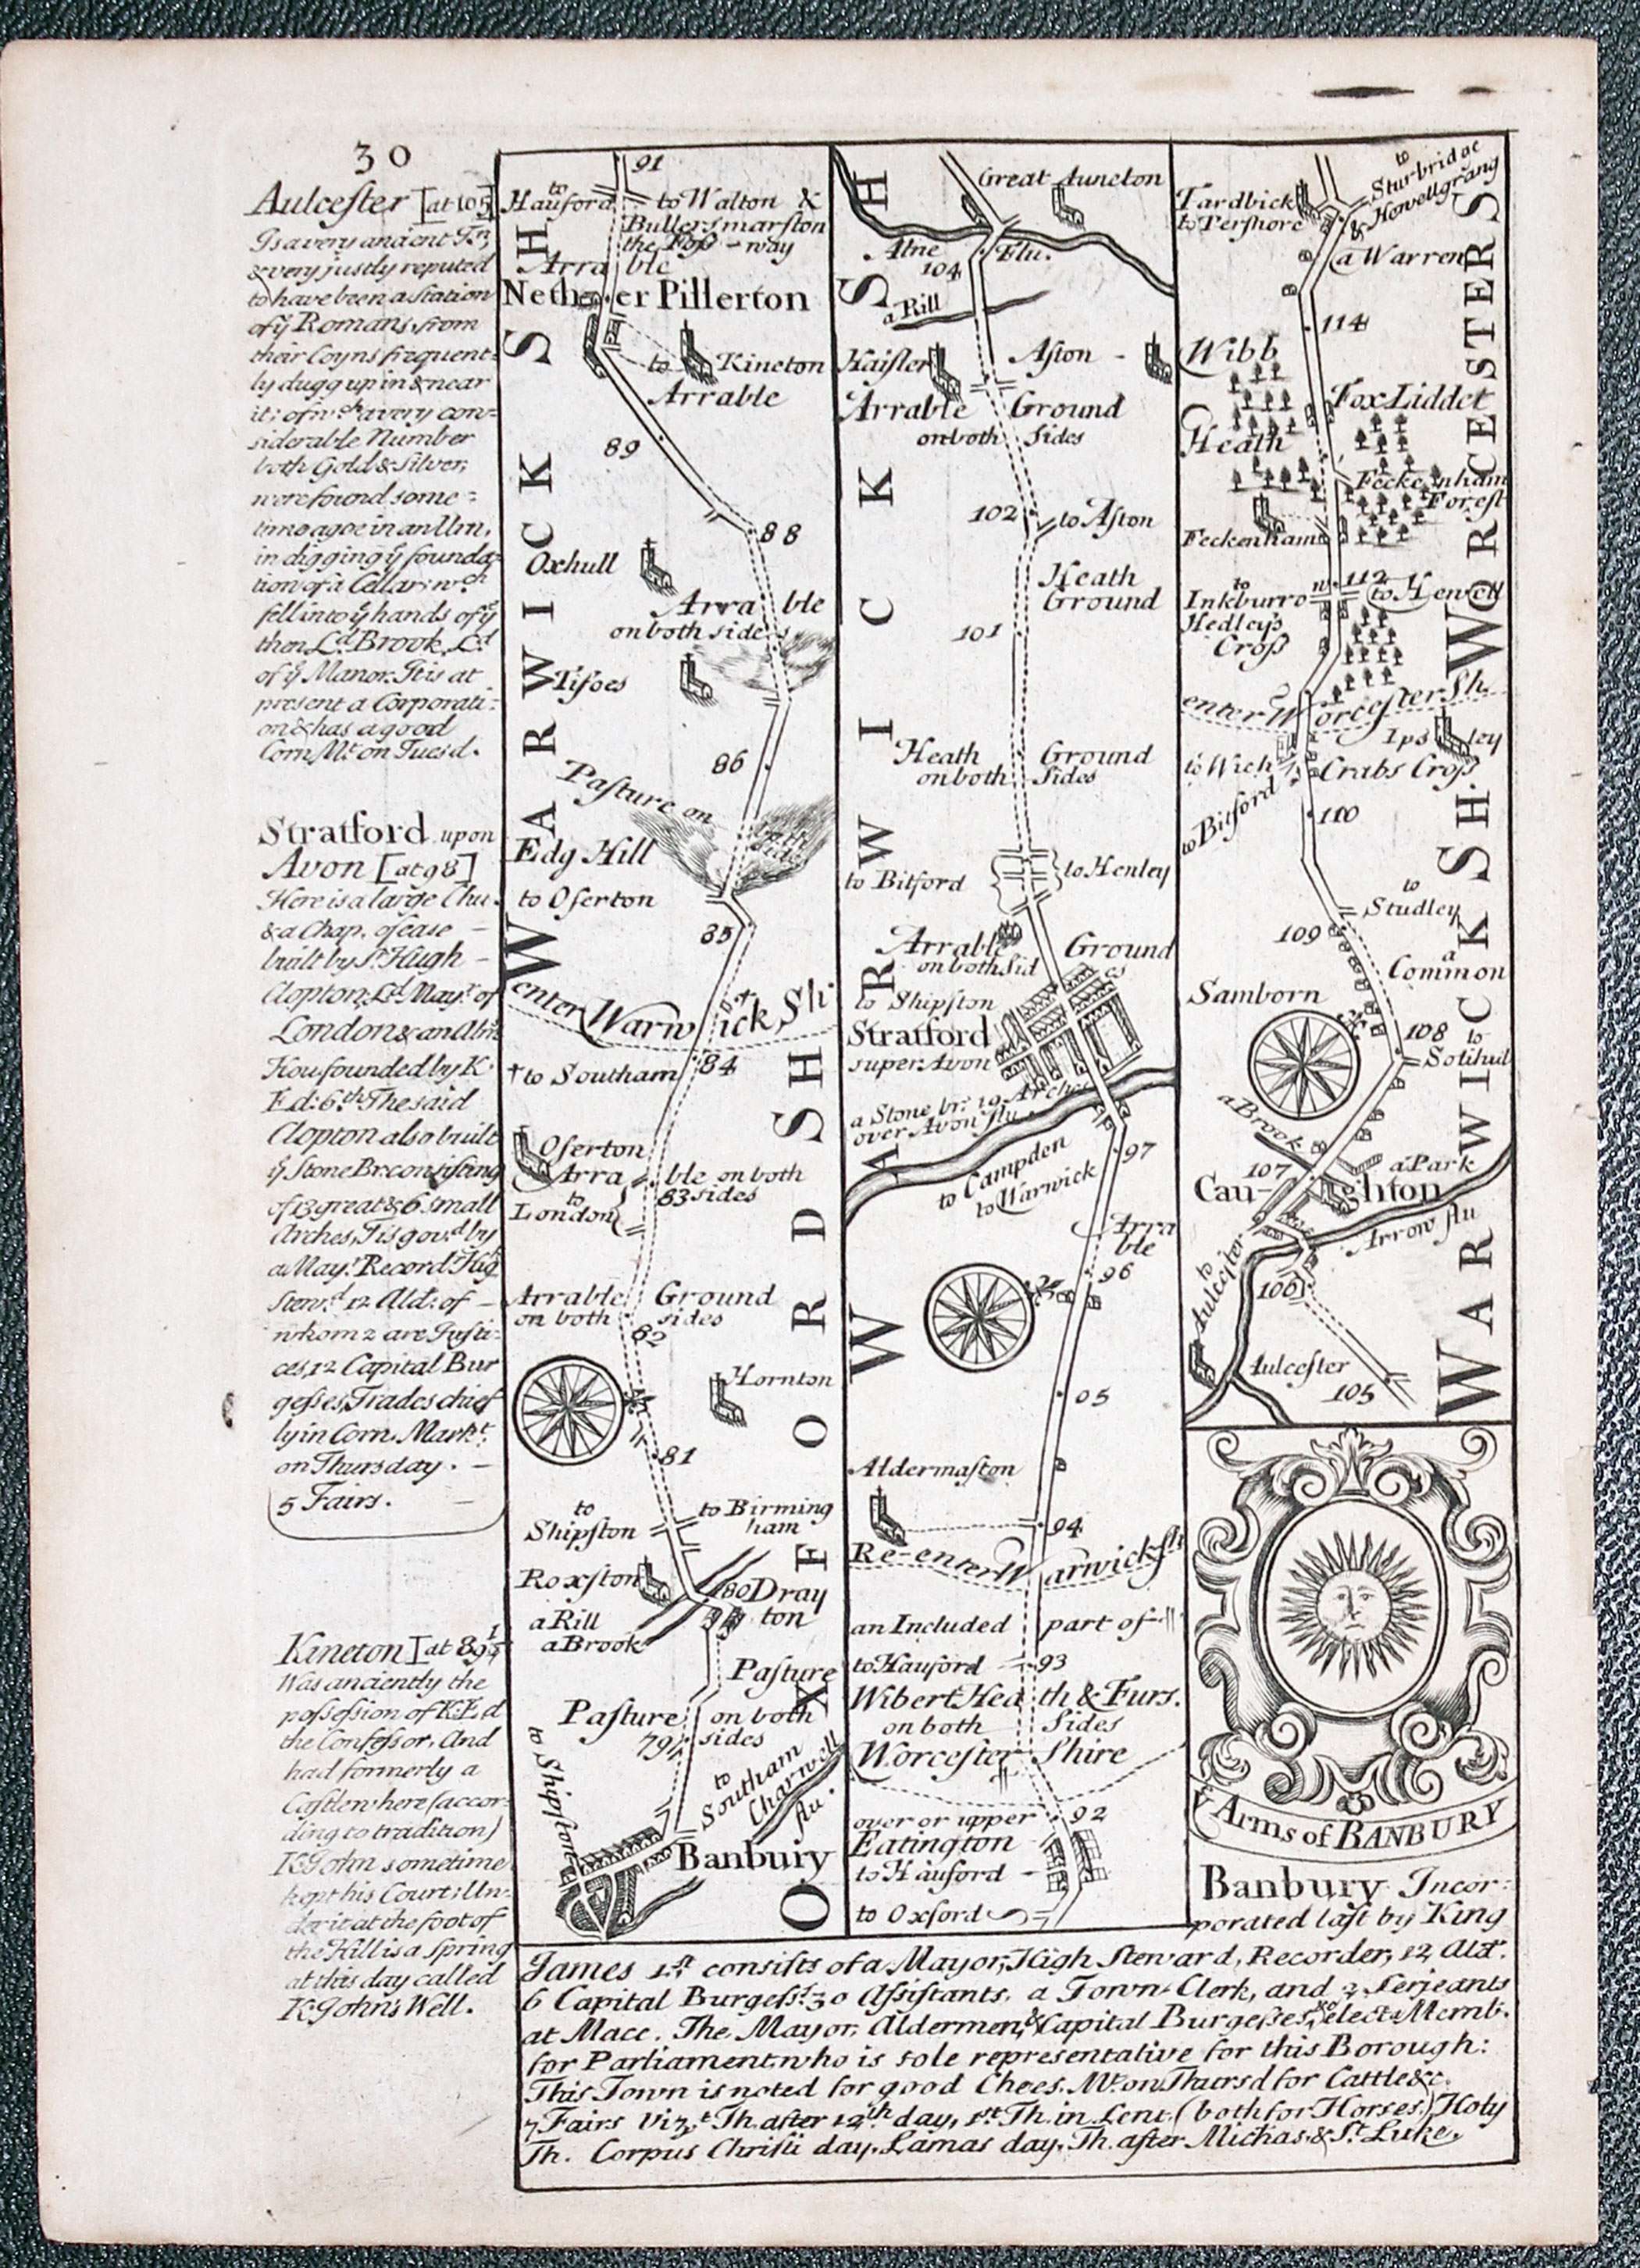 30
Aulcester [at 105]
Is a very ancient Tn.
& very justly reputed
to have been a Station
of ẙ Romans, from
their Coyns frequent-
ly dugg up in & near
it; of wch. a very con-
siderable Number
both Gold & Silver,
were found some =
time agoe in an Urn,
in digging ẙ founda-
tion of a Cellar: wch
fell into ẙ hands of ẙ
then Ld. Brook, Ld
of ẙ Manor. It is at
present a Corporati:
on & has a good
Corn Mt. on Tuesd.
Stratford upon
Avon [at 98]
Here is a large Chu.
& a Chap. of ease —
built by Sr. Hugh —
Clopton, Ld. Mayr. of
London & an Alms
Hou founded by K.
Ed: 6.th The said
Clopton also built
ẙ Stone Br. consisting
of 13 great & 6 small
Arches, Tis gov.d by
a May.r Record.r Hig
Stew.d 12 Ald: of —
whom 2 are Justi-
ces, 12 Capital Bur
gesses, Trades chief
ly in Corn. Mark.t
on Thursday. —
5 Fairs. —
Kineton [at 89
Was anciently the
possession of K. Ed
the Confessor. And
had formerly a
Castle where (accor-
ding to tradition)
K. John sometime
kept his Court: Un-
der it at the foot of
the Hill is a Spring
at this day called
K. John's Well.
91
to
Hauford
to Walton &
Bullers marston
the Foss - way
Arra ble
Nether Pillerton
to Kineton
Arrable
89
88
Oxhull
Arra ble
on both sides
Tisoes
86
Pasture on
both
Edg Hill
to Oserton
85
enter Warwick Sh
84
to Southam
Oserton
Arra ble on both
83 sides
to
London
Arrable Ground
on both sides
82
Hornton
81
to
Shipston
to Birming
ham
Roxston
80 Dray
ton
a Rill
a Brook
Pasture
Pasture on both
sides
79
to Shipston
to
Southam
Charwell
flu.
Banbury
WARWICK SH
OXFORD SH
Great Auncton
Alne Flu.
104
a Rill
Haisler
Aston -
Arrable Ground
on both Sides
102
to Aston
Heath
Ground
101
Heath Ground
on both Sides
to Bitford
to Henley
Arrable Ground
on both Sides
to Shipston
Stratford
super Avon
a Stone br: 19 Arches
over Avon flu.
to Campden
to Warwick
97
Arra
ble
96
95
Aldermaston
94
Re-enter Warwick Sh
an Included part of
to Hauford
93
Wibert Heath & Furs.
on both Sides
Worcester Shire
92
over or upper
Eatington
to Hauford
to Oxford
WARWICK SH
to
Sturbridge
& Howellgrang
Tardbick
to Pershore
a Warren
114
Wibb
Heath
Fox Liddet
Feckenham
Forest
Feckenham
112
to
Inkburro
to Henley
Hedleys
Cross
enter Worcester Sh.
Ipsley
to Wich
Crabs Cross
to Bitford
110
to
Studley
109
a
Common
Samborn
108
to
Solihul
a Brook
107
a Park
Caughton
Arrow flu
to
Aulcester
106
Aulcester
105
WORCESTERS
WARWICK SH
ẙ Arms of BANBURY
Banbury Incor:
porated last by King
James 1.st consists of a Mayor, High Steward, Recorder, 12 Ald.r
6 Capital Burgess.s 30 Assistants, a Town-Clerk, and 2 Serjeants
at Mace. The Mayor, Aldermen, & Capital Burgesses, elect a Memb.
for Parliament, who is sole representative for this Borough:
This Town is noted for good Chees. Mt. on Thursd for Cattle &c.
7 Fairs viz.t Th. after 12th day, 1st Th. in Lent, (both for Horses,) Holy
Th. Corpus Christi day, Lamas day, Th. after Michas, & St. Luke.